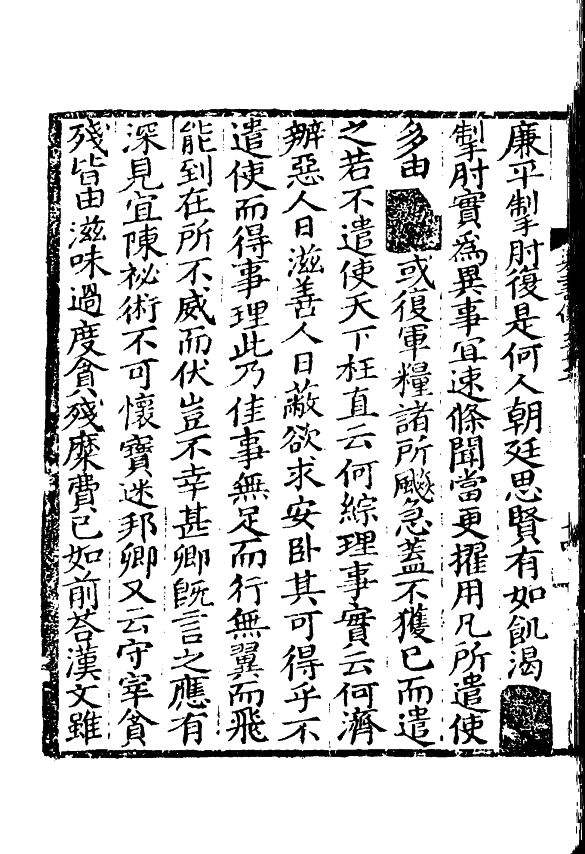 廉平掣肘復是何人朝廷思賢有如飢渴
掣肘實爲異事宜速條聞當更擢用凡所遣使
多由或復軍糧諸所飈急蓋不獲已而遣
之若不遣使天下枉直云何綜理事實云何濟
辦惡人日滋善人日蔽欲求安卧其可得乎不
遣使而得事理此乃佳事無足而行無翼而飛
能到在所不威而伏豈不幸甚卿旣言之應有
深見宜陳祕術不可懷寶迷邦卿又云守宰貪
殘皆由滋味過度貪殘糜費已如前荅漢文雖